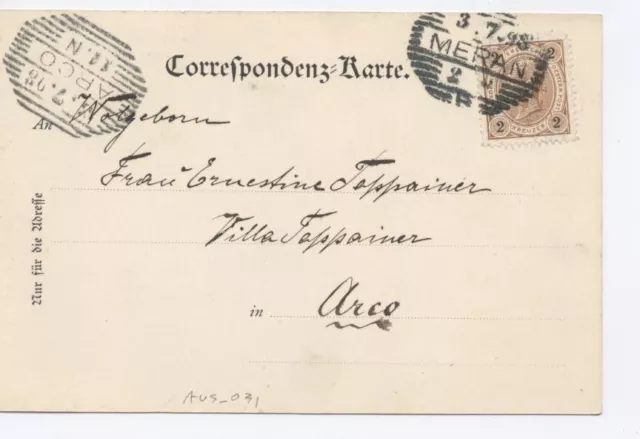 3.7.98
MERAN
2
2
2 KREUZER 2
ARCO
7.98
11.N
Correspondenz-Karte.
An Wolgeborn
Frau Ernestine Tappainer
Villa Tappainer
in Arco
Nur für die Adresse
AUS_031